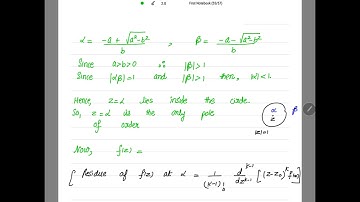 First Notebook (55/57)
α = -a + √a²-b² / b , β = -a - √a²-b² / b
Since a>b>0 ∴ |β|>1
Since |αβ|=1 and |β|>1 then, |α|<1.
Hence, z=α lies inside the circle.
So, z=α is the only pole
of order
α
β
|z|=1
Now, f(z) =
[ Residue of f(z) at α = 1/(k-1)! d^(k-1)/dz^(k-1) [(z-z₀)^k f(z)]